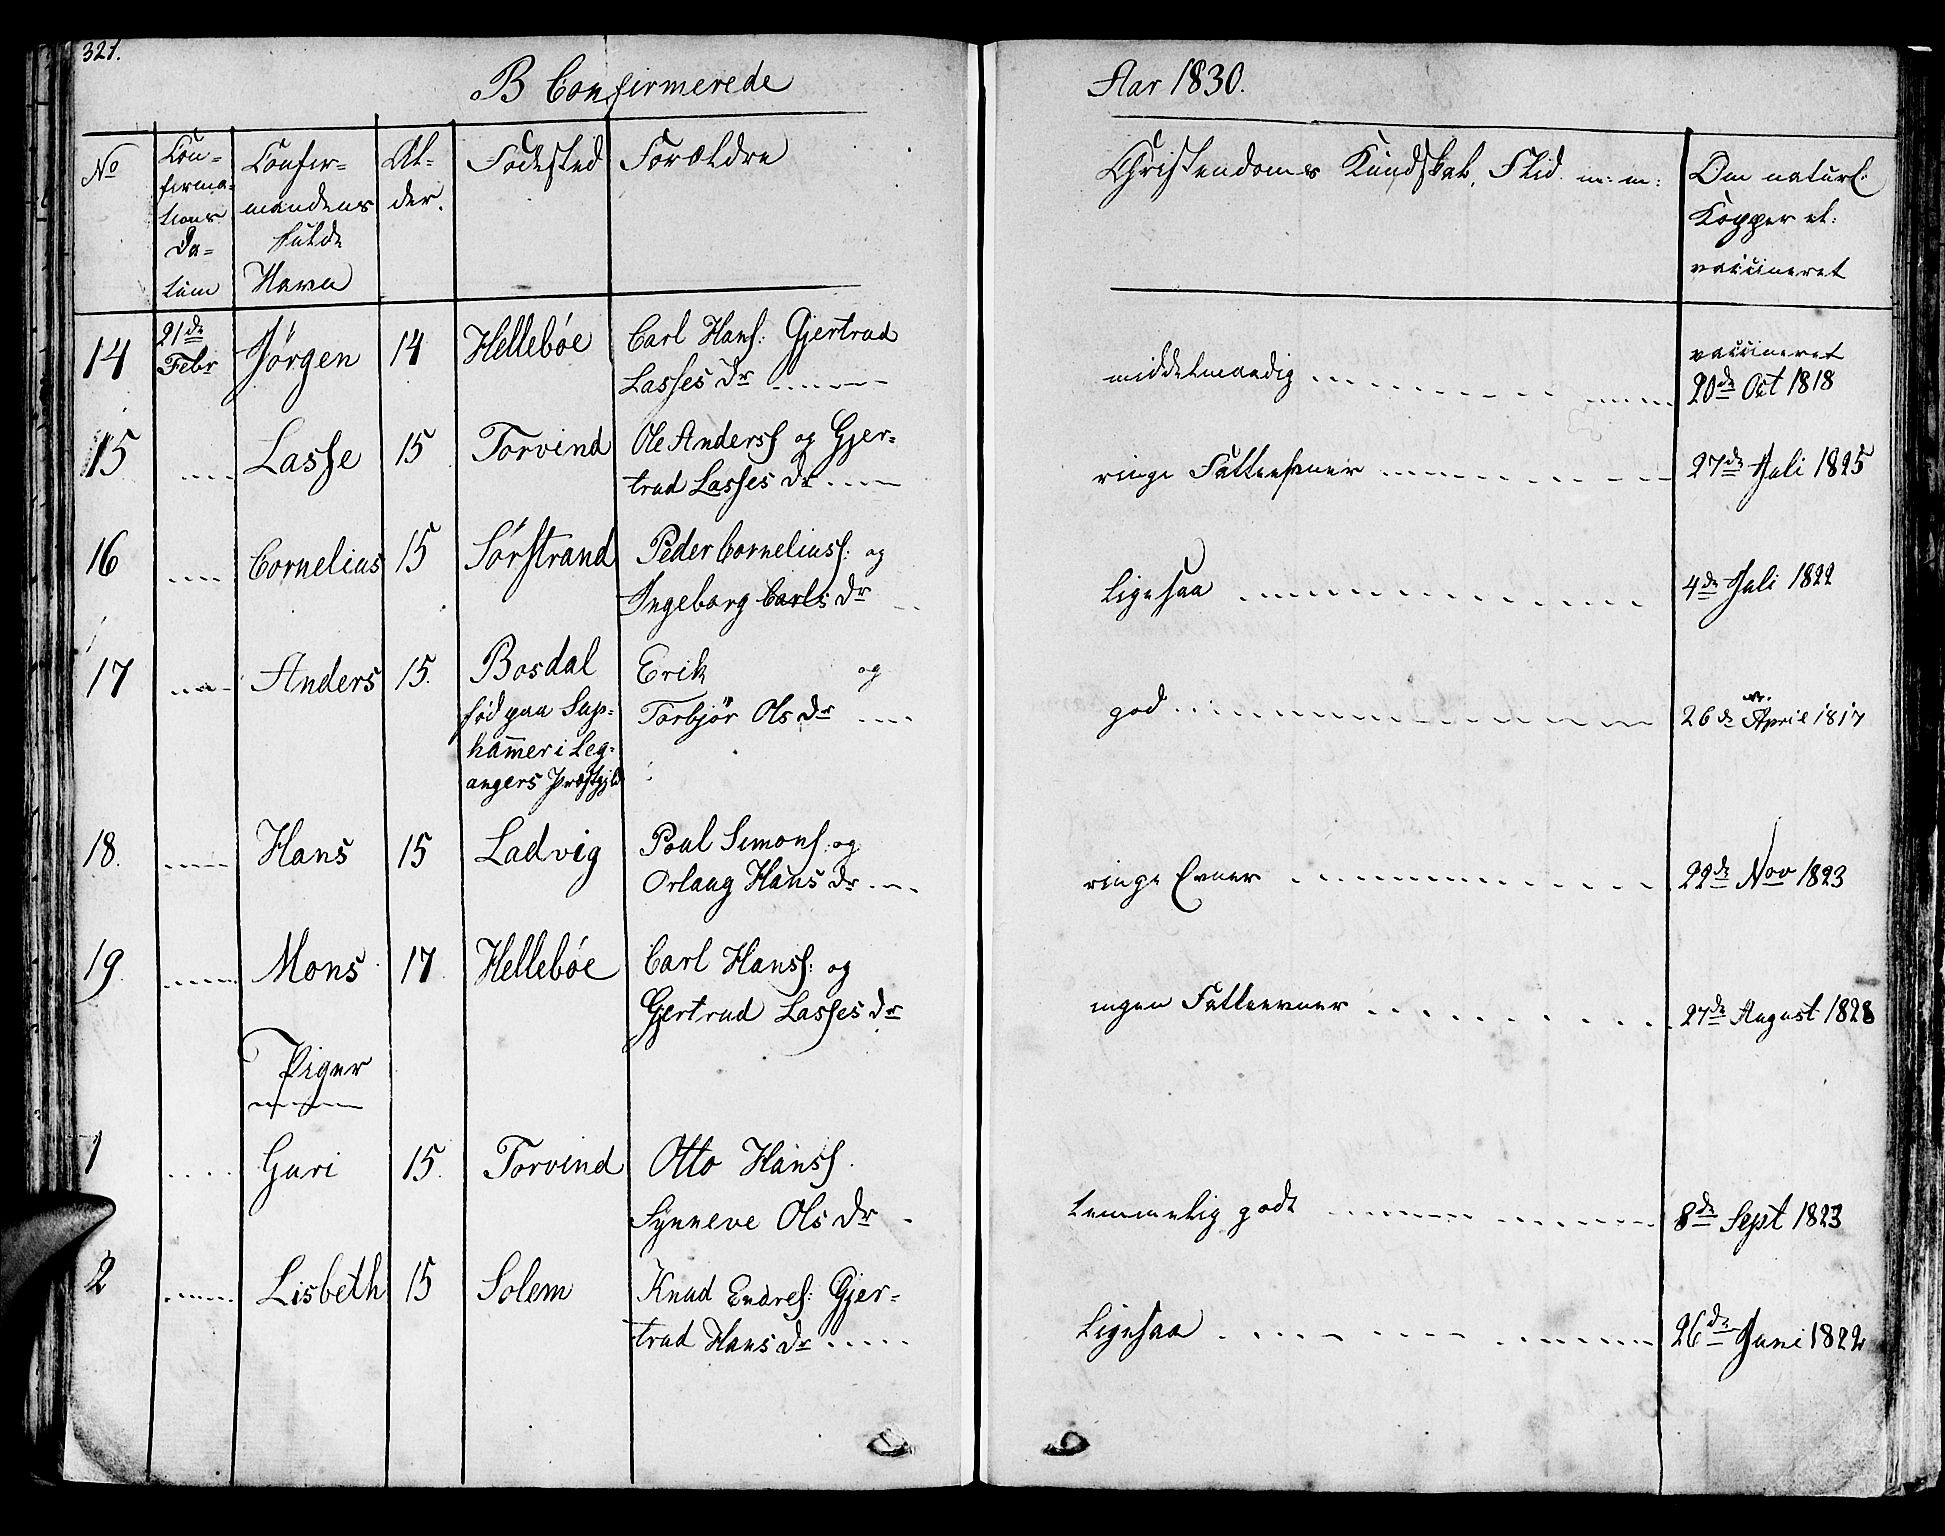 321.
B Confirmerede
Aar 1830.
No
Con-
firma-
tions
Da-
tum
Confir-
mandens
fulde
Navn
Al-
der.
Fødested
Forældre
Christendoms Kundskab, Flid m: m:
Om naturl:
Kopper el:
vaccineret
14
21de
Febr
Jørgen
14
Hellebøe
Carl Hans: Gjertrud
Lasses Dr
middelmaadig
vaccineret
20de Oct 1818
15
Lasse
15
Torvind
Ole Anders og Gjer-
trud Lasses Dr
ringe Fatteevner
27de Juli 1825
16
Cornelius
15
Sørstrand
Peder Cornelius: og
Ingeborg Carls Dr
ligesaa
4de Juli 1822
17
Anders
15.
Bosdal
fød paa Sup-
hammer i Leg-
angers Præstgjld
Erik og
Torbjør Ols Dr
god
26de April 1817
18.
Hans
15
Ladvig
Poul Simons: og
Orlaug Hans Dr
ringe Evner
22de Nov 1823
19.
Mons
17.
Hellebøe
Carl Hanss: og
Gjertrud Lasses Dr
ingen Fatteevner
27de August 1828
Piger
1
Guri
15.
Torvind
Otto Hanss.
Synneve Ols Dr
temmelig godt
8de Sept 1823
2
Lisbeth
15
Solem
Knud Endres: Gjer-
trud Hans Dr
ligesaa
26de Juni 1822